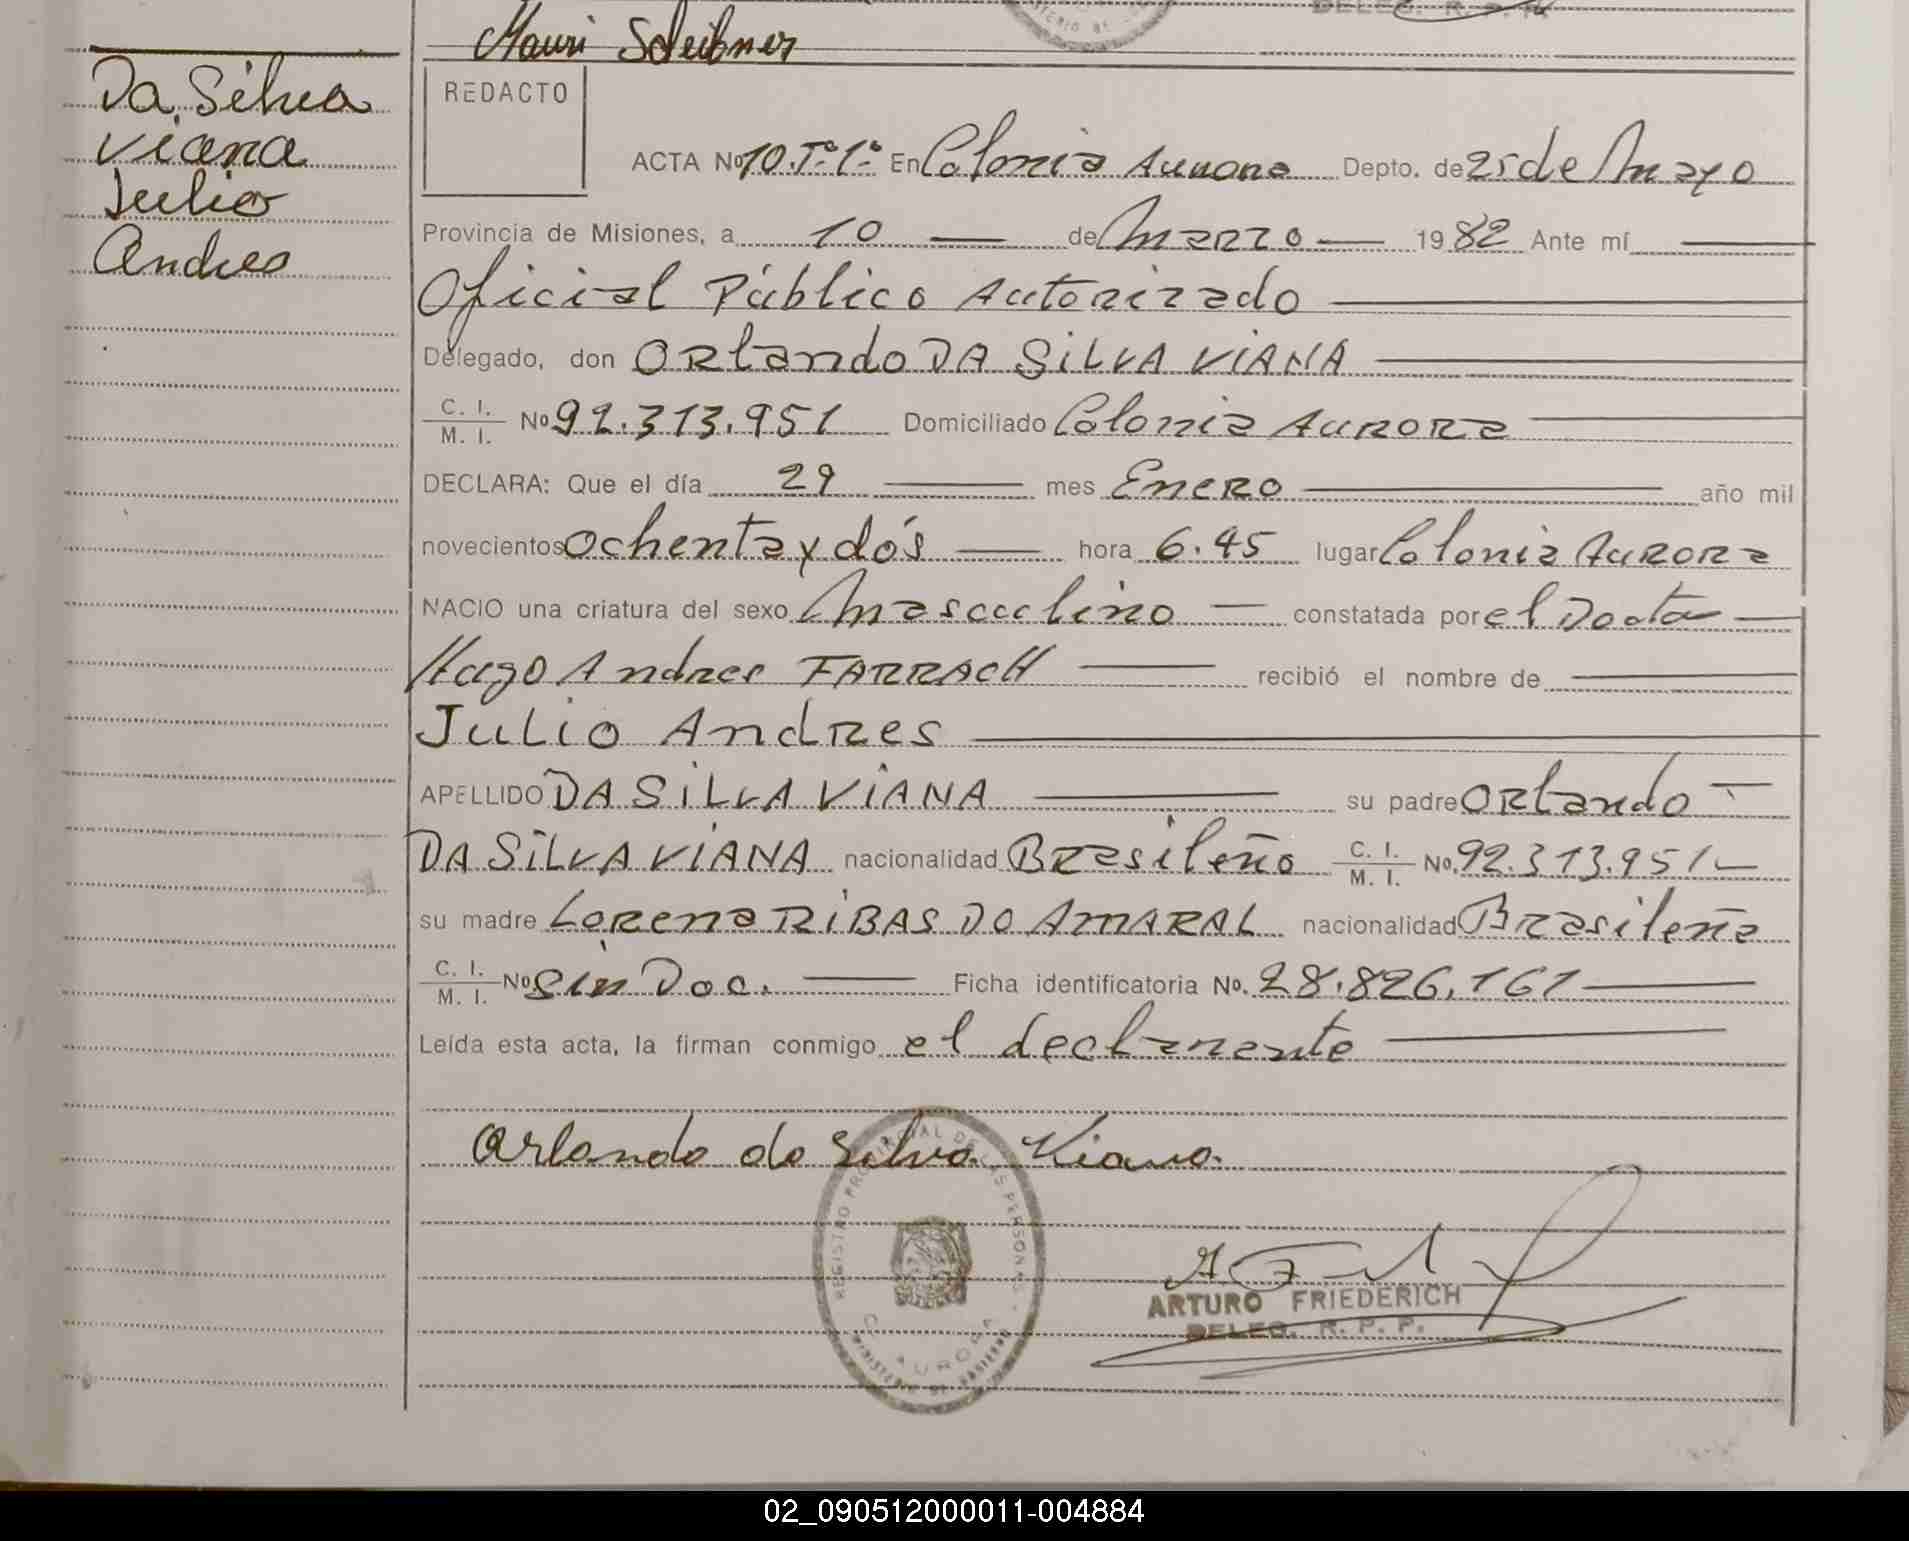 Mauri Scheibner
Da Silva
Viana
Julio
Andres
REDACTO
ACTA No 10.Tº1º En Colonia Aurora Depto. de 25 de Mayo
Provincia de Misiones, a 10 de Marzo 1982 Ante mí
Oficial Público Autorizado
Delegado, don Orlando DA SILVA VIANA
C. I.
M. I. No 92.313.951 Domiciliado Colonia Aurora
DECLARA: Que el día 29 mes Enero año mil
novecientos ochenta y dós hora 6.45 lugar Colonia Aurora
NACIO una criatura del sexo Masculino constatada por el Doctor
Hugo Andres FARRACH recibió el nombre de
Julio Andres
APELLIDO DA SILVA VIANA su padre Orlando
DA SILVA VIANA nacionalidad Brasileño C. I. M. I. No. 92.313.951
su madre Lorena RIBAS DO AMARAL nacionalidad Brasileña
C. I.
M. I. No sin Doc. Ficha identificatoria No. 28.826.161
Leída esta acta, la firman conmigo el declarante
Orlando da Silva Viana
REGISTRO PROVINCIAL DE LAS PERSONAS
C. AURORA
MINISTERIO DE GOBIERNO
ARTURO FRIEDERICH
DELEG. R. P. P.
02_090512000011-004884